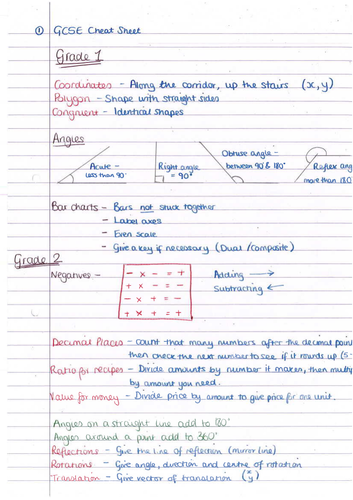 ① GCSE Cheat Sheet
Grade 1
Coordinates - Along the corridor, up the stairs (x,y)
Polygon - Shape with straight sides
Congruent - Identical shapes
Angles
Acute - less than 90°
Right angle = 90°
Obtuse angle - between 90° & 180°
Reflex ang
more than 180
Bar charts - Bars not stuck together
- Label axes
- Even scale
- Give a key if necessary (Dual / Composite)
Grade 2
Negatives -
- × - = +
+ × - = -
- × + = -
+ × + = +
Adding →
Subtracting ←
Decimal Places - Count that many numbers after the decimal point
then check the next number to see if it rounds up (5
Ratio for recipes - Divide amounts by number it makes, then multip
by amount you need.
Value for money - Divide price by amount to give price for one unit.
Angles on a straight line add to 180°
Angles around a point add to 360°
Reflections - Give the line of reflection (mirror line)
Rotations - Give angle, direction and centre of rotation
Translation - Give vector of translation (x y)